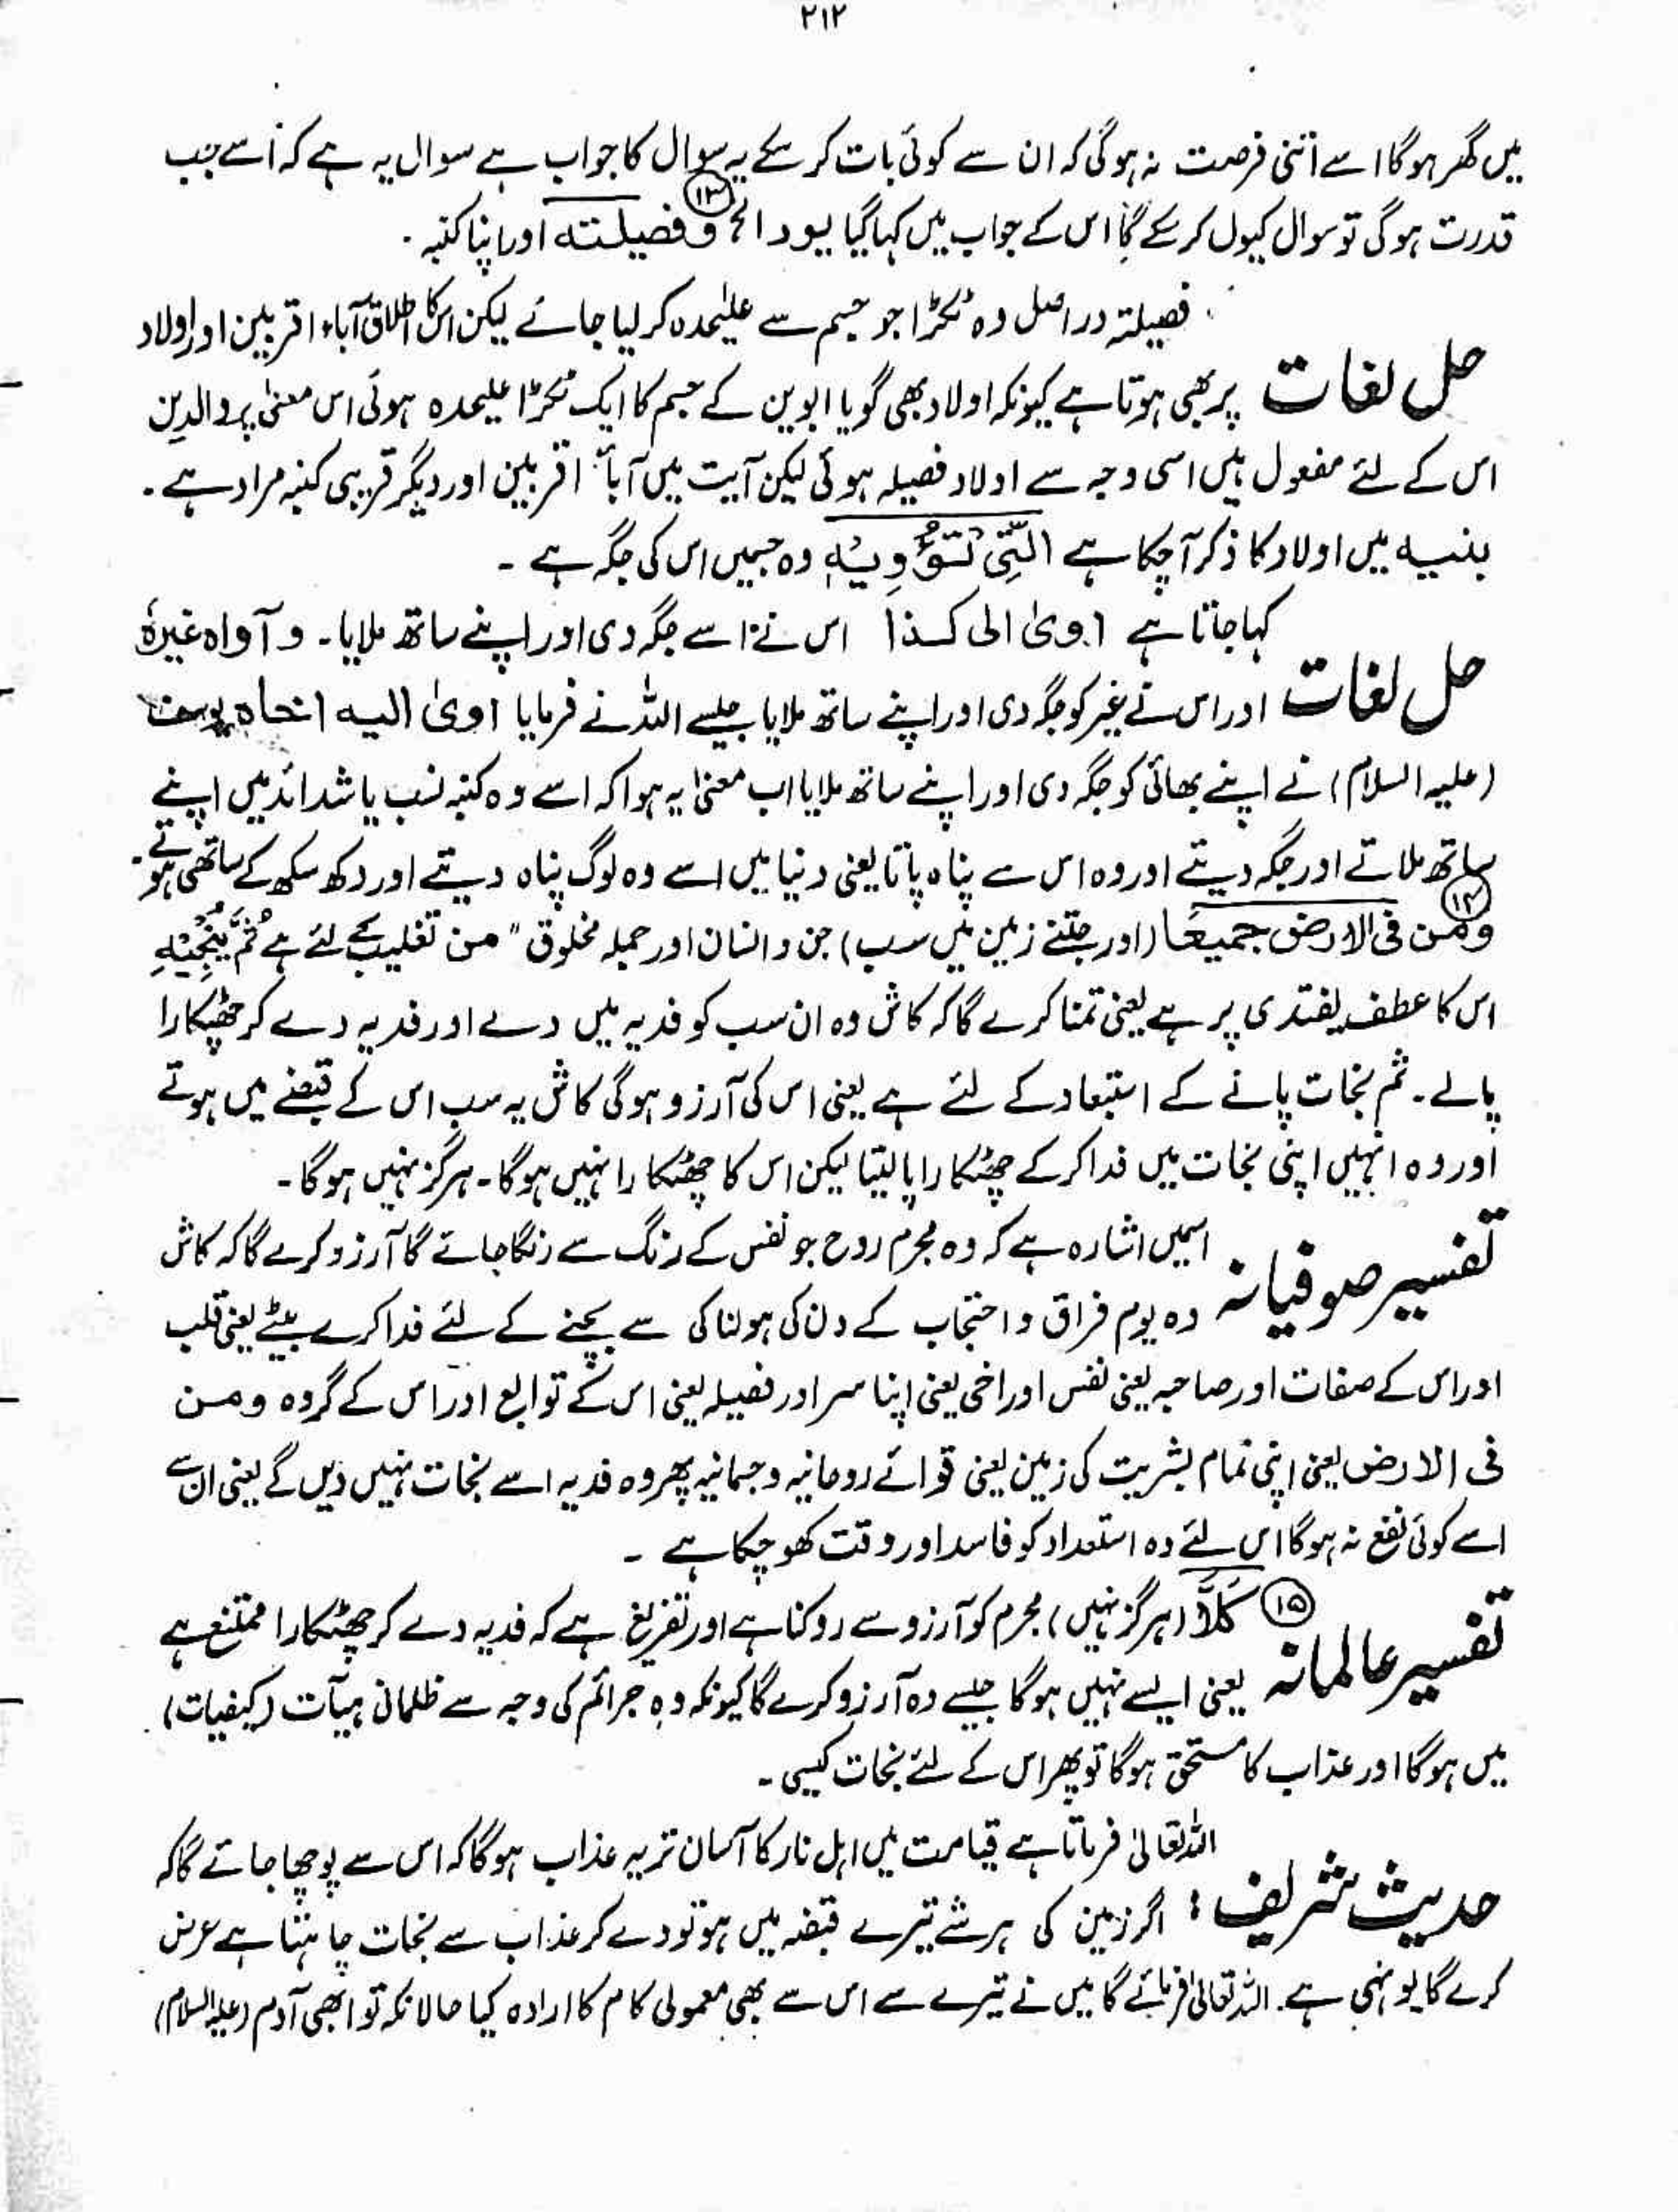 ۲۱۲
میں گھر ہوگا اسے اتنی فرصت نہ ہوگی کہ ان سے کوئی بات کر سکے یہ سوال کا جواب ہے سوال یہ ہے کہ اُسے جب
قدرت ہوگی تو سوال کیوں کر سکے گا اس کے جواب میں کہا گیا یود الخ ⑬ وفصیلتہ اور اپنا کنبہ ۔
فصیلتہ دراصل وہ ٹکڑا جو جسم سے علیٰحدہ کر لیا جائے لیکن اس کا اطلاق آباء اقربین اور اولاد
حل لغات پر بھی ہوتا ہے کیونکہ اولاد بھی گویا ابوین کے جسم کا ایک ٹکڑا علیحدہ ہوئی اس معنیٰ پر والدین
اس کے لئے مفعول ہیں اسی وجہ سے اولاد فصیلہ ہوئی لیکن آیت میں آبأ اقربین اور دیگر قریبی کنبہ مراد ہے ۔
بنیہ میں اولاد کا ذکر آچکا ہے الَّتِیْ تُـؤْوِیْہِ وہ جسمیں اس کی جگہ ہے ۔
کہا جاتا ہے اویٰ الی کذا اس نے اسے جگہ دی اور اپنے ساتھ ملایا۔ و آواہ غیرہٗ
حل لغات اور اس نے غیر کو جگہ دی اور اپنے ساتھ ملایا جیسے اللہ نے فرمایا اویٰ الیہ اخاہ یوسف
(علیہ السلام) نے اپنے بھائی کو جگہ دی اور اپنے ساتھ ملایا اب معنیٰ یہ ہوا کہ اسے وہ کنبہ نسب یا شدائد میں اپنے
ساتھ ملاتے اور جگہ دیتے اور وہ اس سے پناہ پاتا یعنی دنیا میں اسے وہ لوگ پناہ دیتے اور دکھ سکھ کے ساتھی ہوتے ۔
⑭ ومن فی الارض جمیعًا (اور جتنے زمین میں سب) جن و انسان اور جملہ مخلوق " من تغلیب کے لئے ہے ثُمَّ یُنْجِیْہِ
اس کا عطف یفتدی پر ہے یعنی تمنا کرے گا کہ کاش وہ ان سب کو فدیہ میں دے اور فدیہ دے کر چھٹکارا
پالے ۔ ثم نجات پانے کے استبعاد کے لئے ہے یعنی اس کی آرزو ہوگی کاش یہ سب اس کے قبضے میں ہوتے
اور وہ انہیں اپنی نجات میں فدا کرکے چھٹکارا پالیتا لیکن اس کا چھٹکارا نہیں ہوگا ۔ ہرگز نہیں ہوگا ۔
اسمیں اشارہ ہے کہ وہ مجرم روح جو نفس کے رنگ سے رنگا جائے گا آرزو کرے گا کہ کاش
تفسیر صوفیانہ وہ یوم فراق و احتجاب کے دن کی ہولناکی سے بچنے کے لئے فدا کرے بیٹے یعنی قلب
اور اس کے صفات اور صاحبہ یعنی نفس اور اخی یعنی اپنا سر اور فصیلہ یعنی اس کے توابع اور اس کے گروہ ومن
فی الارض یعنی اپنی تمام بشریت کی زمین یعنی قوائے روحانیہ وجسمانیہ پھر وہ فدیہ اسے نجات نہیں دیں گے یعنی ان سے
اسے کوئی نفع نہ ہوگا اس لئے وہ استعداد کو فاسد اور وقت کھو چکا ہے ۔
⑮ کَلَّا (ہرگز نہیں) مجرم کو آرزو سے روکنا ہے اور تفریغ ہے کہ فدیہ دے کر چھٹکارا ممتنع ہے
تفسیر عالمانہ یعنی ایسے نہیں ہوگا جیسے وہ آرزو کرے گا کیونکہ وہ جرائم کی وجہ سے ظلمانی ہیآت (کیفیات)
میں ہوگا اور عذاب کا مستحق ہوگا تو پھر اس کے لئے نجات کیسی ۔
اللہ تعالیٰ فرماتا ہے قیامت میں اہل نار کا آسان تر یہ عذاب ہوگا کہ اس سے پوچھا جائے گا کہ
حدیث شریف : اگر زمین کی ہر شے تیرے قبضہ میں ہو تو دے کر عذاب سے نجات چاہتا ہے عرض
کرے گا یونہی ہے ۔ اللہ تعالیٰ فرمائے گا میں نے تیرے سے اس سے بھی معمولی کام کا ارادہ کیا حالانکہ تو ابھی آدم (علیہ السلام)